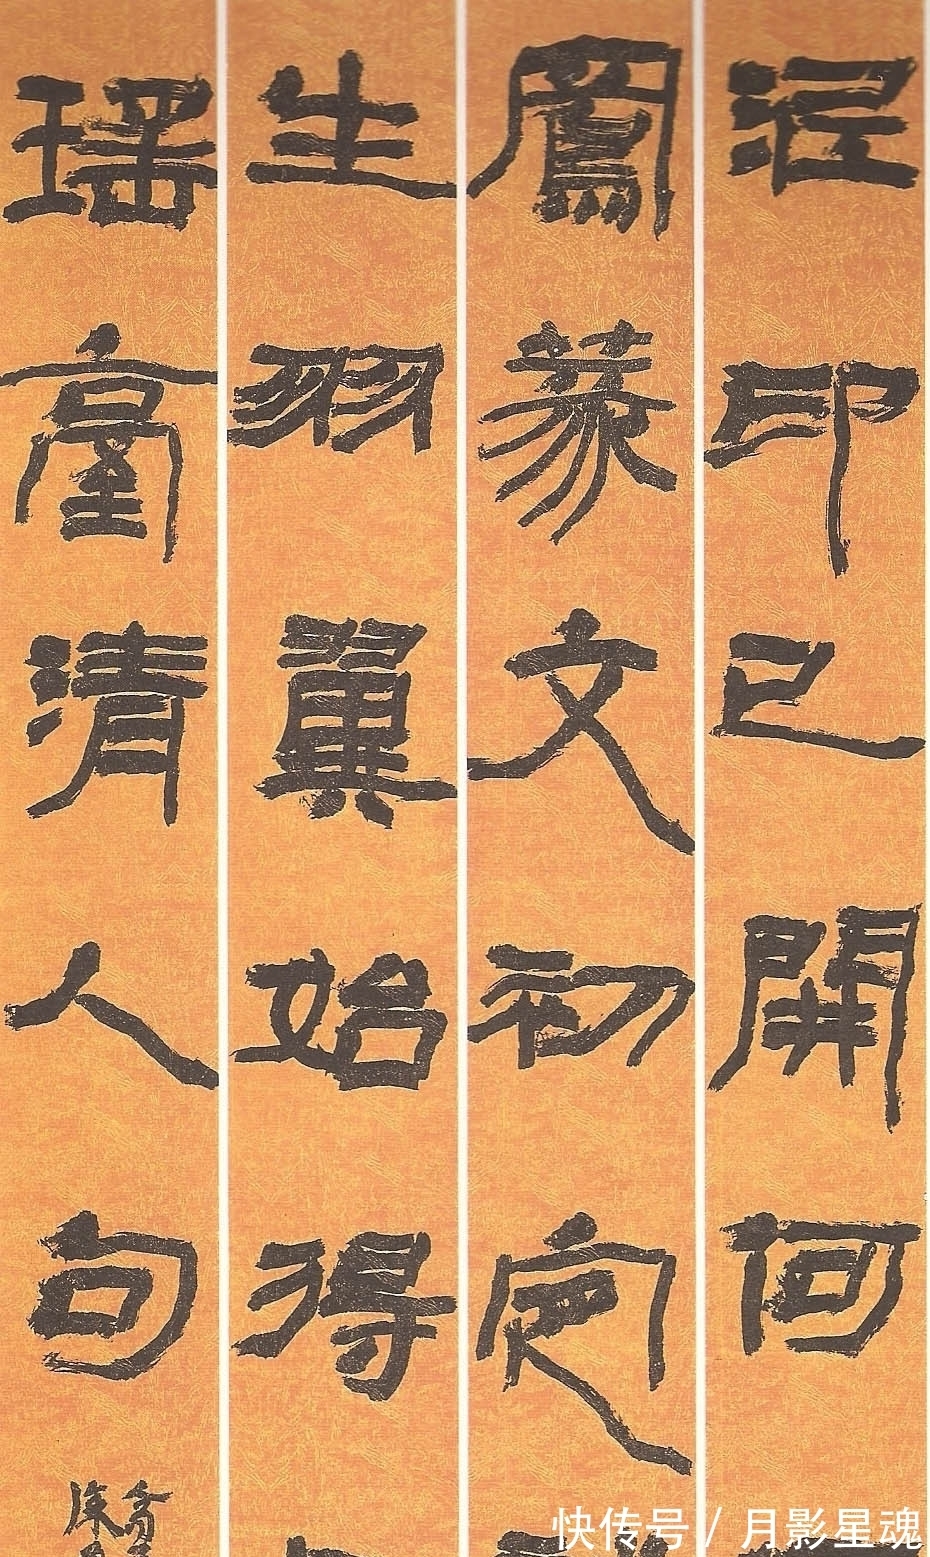 泥印已開何
鳳篆文初定
生羽翼始得
瑤臺清人句
快传号 / 月影星魂